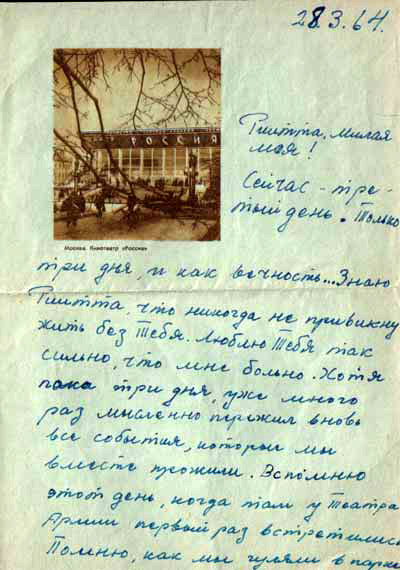 28.3.64.
РОССИЯ
Москва. Кинотеатр «Россия»
Риитта, милая
моя!
Сейчас - тре-
тий день. Только
три дня, и как вечность... Знаю
Риитта, что никогда не привикну
жить без Тебя. Люблю Тебя так
сильно, что мне больно. Хотя
пока три дня, уже много
раз мысленно пережил вновь
все события, которые мы
вместе прожили. Вспомню
этот день, когда там у Театра
Армии первый раз встретились
Помню, как мы гуляли в парке